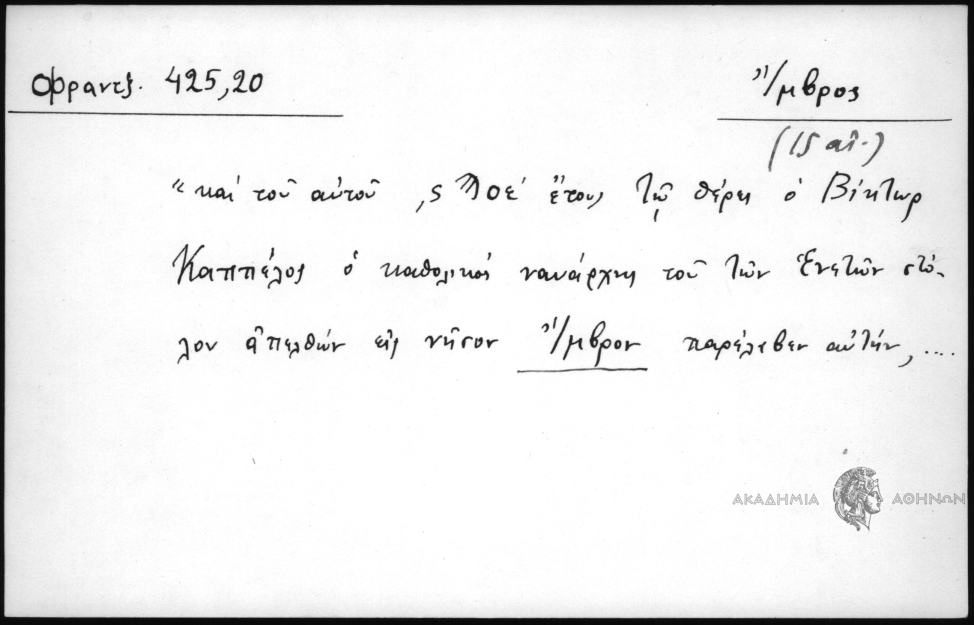 Φραντζ. 425,20
Ἴμβρος
(15 αἰ.)
"καί τοῦ αὐτοῦ ͵ϛϠοε΄ ἔτους τῷ θέρει ὁ Βίκτωρ
Καππέλος ὁ καθολικός ναυάρχης τοῦ τῶν Ἐνετῶν στό-
λου ἀπελθών εἰς νῆσον Ἴμβρον παρέλαβεν αὐτήν, ....
ΑΚΑΔΗΜΙΑ ΑΘΗΝΩΝ